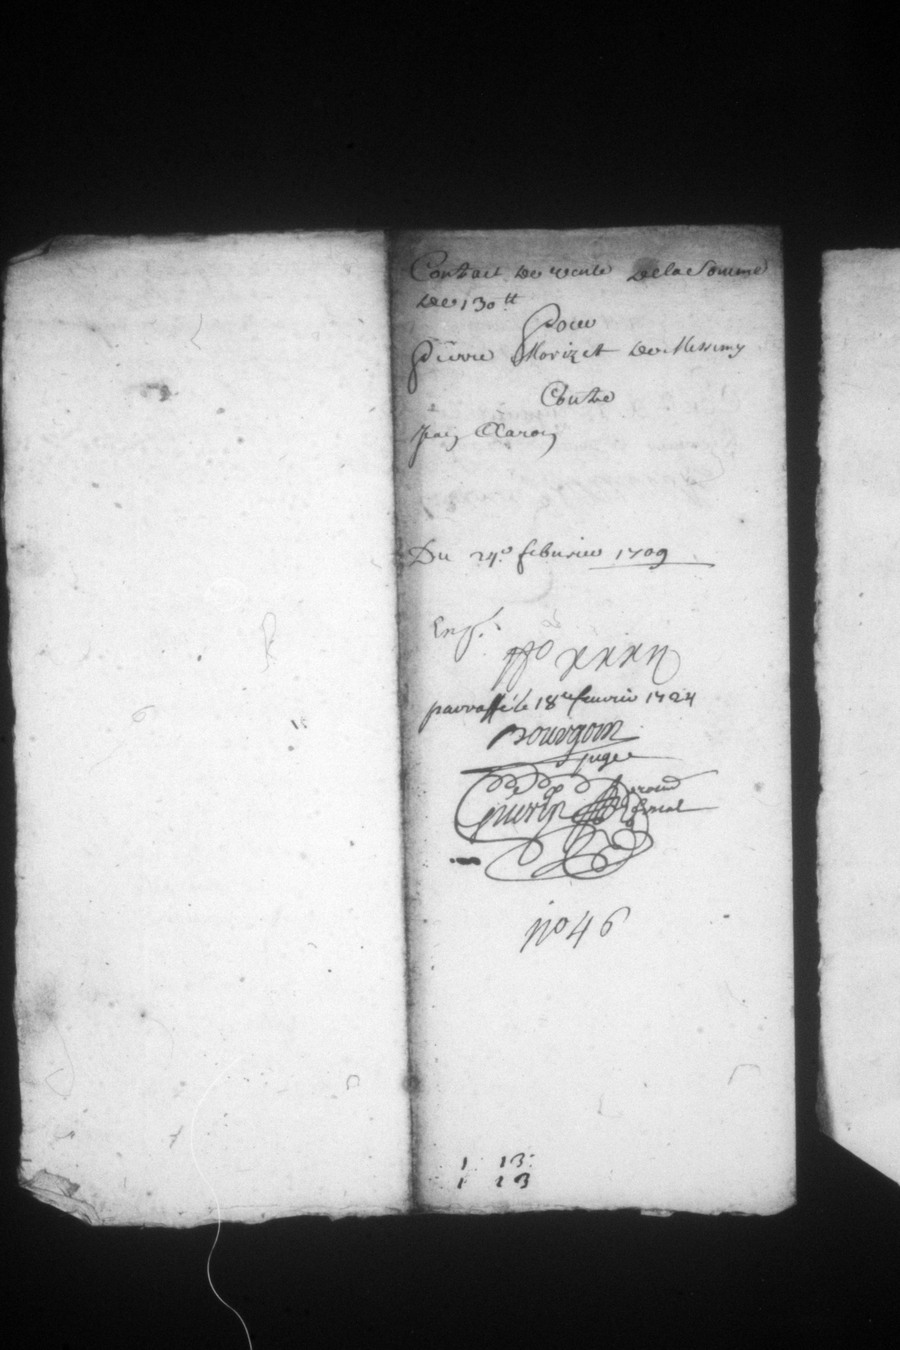 Contract de vente de la Somme
de 130 tt
Pour
Pierre Morizet de Messimy
Contre
Jean Caron
Du 24.e februier 1709
Eng.
ffo xxxij
parraffé le 18e feurier 1724
Bourgoin
juge
Guerin
fiscal
no 46
1 13
1 13